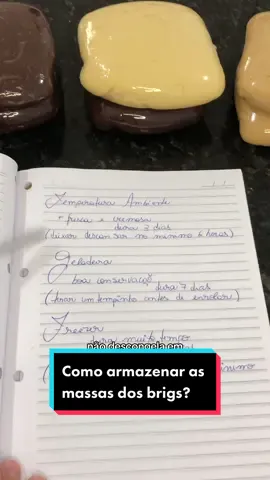 Temperatura Ambiente
* fresca e cremosa
dura 3 dias
(deixar descansar no mínimo 6 horas)
Geladeira
boa conservação
dura 7 dias
(tirar um tempinho antes de enrolar)
Freezer
dura muito tempo
não descongela em
Como armazenar as
massas dos brigs?